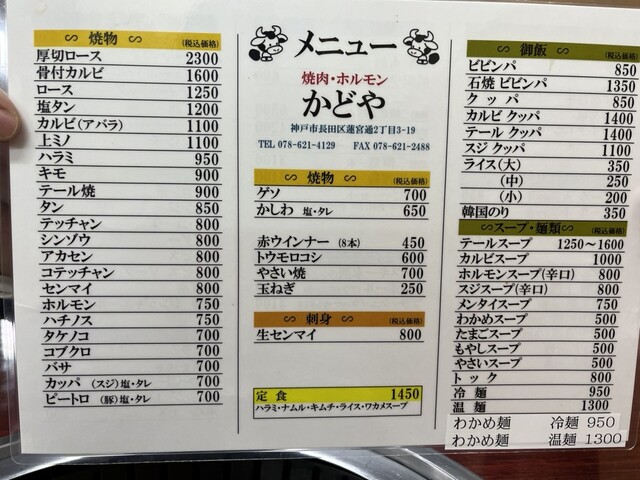 焼物 (税込価格)
厚切ロース 2300
骨付カルビ 1600
ロース 1250
塩タン 1200
カルビ(アバラ) 1100
上ミノ 1100
ハラミ 950
キモ 900
テール焼 900
タン 850
テッチャン 800
シンゾウ 800
アカセン 800
コテッチャン 800
センマイ 800
ホルモン 750
ハチノス 750
タケノコ 700
コブクロ 700
バサ 700
カッパ (スジ)塩・タレ 700
ピートロ (豚)塩・タレ 700
メニュー
焼肉・ホルモン
かどや
神戸市長田区蓮宮通2丁目3-19
TEL 078-621-4129 FAX 078-621-2488
焼物 (税込価格)
ゲソ 700
かしわ 塩・タレ 650
赤ウインナー (8本) 450
トウモロコシ 600
やさい焼 700
玉ねぎ 250
刺身 (税込価格)
生センマイ 800
定食 1450
ハラミ・ナムル・キムチ・ライス・ワカメスープ
御飯 (税込価格)
ビビンパ 850
石焼 ビビンパ 1350
クッパ 850
カルビ クッパ 1400
テール クッパ 1400
スジ クッパ 1100
ライス(大) 350
(中) 250
(小) 200
韓国のり 350
スープ・麺類 (税込価格)
テールスープ 1250〜1600
カルビスープ 1000
ホルモンスープ(辛口) 800
スジスープ(辛口) 800
メンタイスープ 750
わかめスープ 500
たまごスープ 500
もやしスープ 500
やさいスープ 500
トック 800
冷麺 950
温麺 1300
わかめ麺 冷麺 950
わかめ麺 温麺 1300